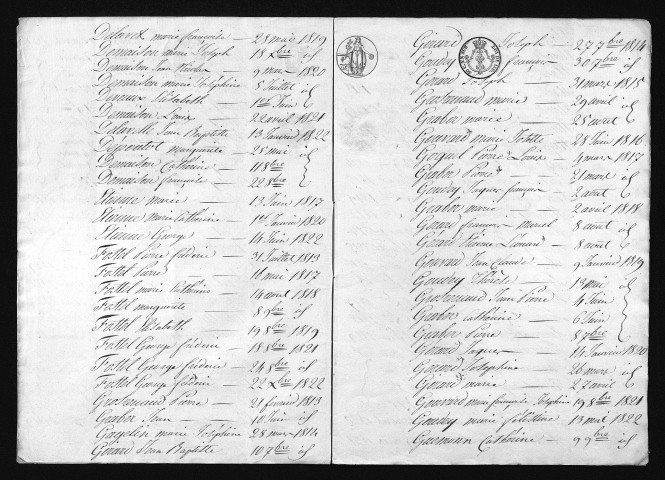 Delavelx marie françoise — 28 mars 1819
Demaison marie Joseph — 18 Xbre id
Demaison Jean Nicolas — 9 mars 1820
Demaison marie Joséphine 5 Juillet id
Elisabeth — 1er Juin
Demaison Louis — 22 avril 1821
Delaville Jean Baptiste — 13 Janvier 1822
marguerite — 25 mai
Demaison Catherine — 11 8bre
Demaison françoise — 22 8bre
Etienne marie — 13 Juin 1817
Etienne marie Catherine — 1er Janvier 1820
Etienne George — 14 Juin 1822
Fattel Pierre frédéric — 31 Juillet 1813
Fattel Pierre — 16 mai 1817
Fattel marie Catherine — 14 avril 1818
Fattel marguerite — 8 9bre id
Fattel Elisabeth — 19 8bre 1819
Fattel George frédéric — 18 8bre 1821
Fattel George frédéric — 24 8bre id
Fattel George frédéric — 22 Xbre 1822
Grosrenaud Pierre — 21 février 1813
Grabor Jean — 10 Juin id
marie Joséphine 28 mars 1814
Gérard Jean Baptiste — 10 7bre id
Gérard Joseph — 27 7bre 1814
Goudey françois — 30 7bre id
Gérard Joseph — 31 mars 1815
Grosrenaud marie — 29 avril id
Grabor marie — 25 avril
Gouvard marie — 28 Juin 1816
Pierre Louis — 4 mars 1817
Grabor Pierre — 21 mars id
Goudey Jaques françois — 2 aout
Grabor marie — 2 avril 1818
Gérard françois marcel — 8 avril id
Gérard Etienne — 8 avril
Gouvard Jean Claude — 9 Janvier 1819
Goudey Thérèse — 13 mai id
Grosrenaud Jean Pierre — 4 Juin
Grabor Catherine — 6 Juin
Grabor Pierre — 8 7bre
Gérard Jaques — 14 Janvier 1820
Gérard Joséphine — 26 mars id
Gérard marie — 27 avril
Gouvard marie françoise Joséphine 19 8bre 1821
Goudey marie Célestine 13 mai 1822
Germann Catherine — 9 9bre id